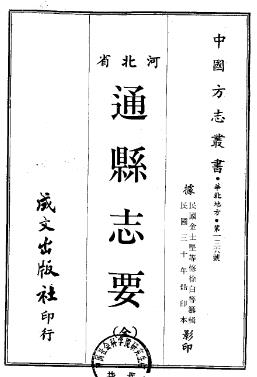 中國方志叢書・華北地方・第一三六號
據民國金士堅等修徐白等纂輯
民國三十年鉛印本影印
河北省
通縣志要
(全)
成文出版社印行